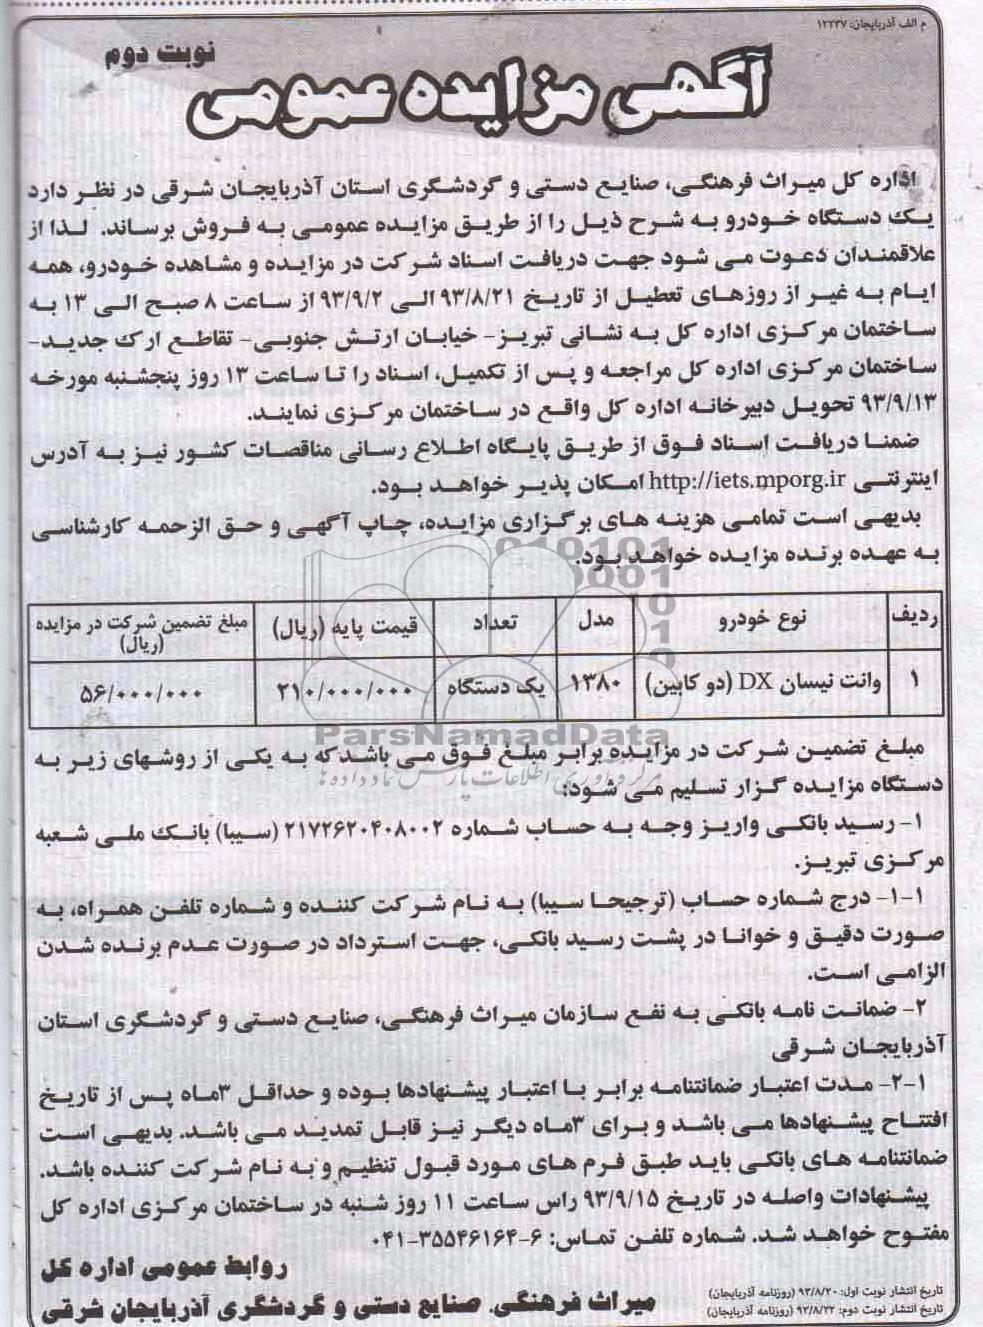 م الف آذربایجان: ۱۲۲۳۷
نوبت دوم
آگهی مزایده عمومی
اداره کل میراث فرهنگی، صنایع دستی و گردشگری استان آذربایجان شرقی در نظر دارد
یک دستگاه خودرو به شرح ذیل را از طریق مزایده عمومی به فروش برساند. لذا از
علاقمندان دعوت می شود جهت دریافت اسناد شرکت در مزایده و مشاهده خودرو، همه
ایام به غیر از روزهای تعطیل از تاریخ ۹۳/۸/۲۱ الی ۹۳/۹/۲ از ساعت ۸ صبح الی ۱۳ به
ساختمان مرکزی اداره کل به نشانی تبریز- خیابان ارتش جنوبی- تقاطع ارک جدید-
ساختمان مرکزی اداره کل مراجعه و پس از تکمیل، اسناد را تا ساعت ۱۳ روز پنجشنبه مورخه
۹۳/۹/۱۳ تحویل دبیرخانه اداره کل واقع در ساختمان مرکزی نمایند.
ضمنا دریافت اسناد فوق از طریق پایگاه اطلاع رسانی مناقصات کشور نیز به آدرس
اینترنتی http://iets.mporg.ir امکان پذیر خواهد بود.
بدیهی است تمامی هزینه های برگزاری مزایده، چاپ آگهی و حق الزحمه کارشناسی
به عهده برنده مزایده خواهد بود.
ردیف نوع خودرو مدل تعداد قیمت پایه (ریال) مبلغ تضمین شرکت در مزایده (ریال)
۱ وانت نیسان DX (دو کابین) ۱۳۸۰ یک دستگاه ۲۱۰/۰۰۰/۰۰۰ ۵۶/۰۰۰/۰۰۰
ParsNamadData
مبلغ تضمین شرکت در مزایده برابر مبلغ فوق می باشد که به یکی از روشهای زیر به
مرکز فرآوری اطلاعات پارس نماد داده ها
دستگاه مزایده گزار تسلیم می شود:
۱- رسید بانکی واریز وجه به حساب شماره ۲۱۷۲۶۲۰۴۰۸۰۰۲ (سیبا) بانک ملی شعبه
مرکزی تبریز.
۱-۱- درج شماره حساب (ترجیحا سیبا) به نام شرکت کننده و شماره تلفن همراه، به
صورت دقیق و خوانا در پشت رسید بانکی، جهت استرداد در صورت عدم برنده شدن
الزامی است.
۲- ضمانت نامه بانکی به نفع سازمان میراث فرهنگی، صنایع دستی و گردشگری استان
آذربایجان شرقی
۲-۱- مدت اعتبار ضمانتنامه برابر با اعتبار پیشنهادها بوده و حداقل ۳ماه پس از تاریخ
افتتاح پیشنهادها می باشد و برای ۳ماه دیگر نیز قابل تمدید می باشد. بدیهی است
ضمانتنامه های بانکی باید طبق فرم های مورد قبول تنظیم و به نام شرکت کننده باشد.
پیشنهادات واصله در تاریخ ۹۳/۹/۱۵ راس ساعت ۱۱ روز شنبه در ساختمان مرکزی اداره کل
مفتوح خواهد شد. شماره تلفن تماس: ۶-۳۵۵۴۶۱۶۴-۰۴۱
روابط عمومی اداره کل
میراث فرهنگی، صنایع دستی و گردشگری آذربایجان شرقی
تاریخ انتشار نوبت اول: ۹۳/۸/۲۰ (روزنامه آذربایجان)
تاریخ انتشار نوبت دوم: ۹۳/۸/۲۲ (روزنامه آذربایجان)